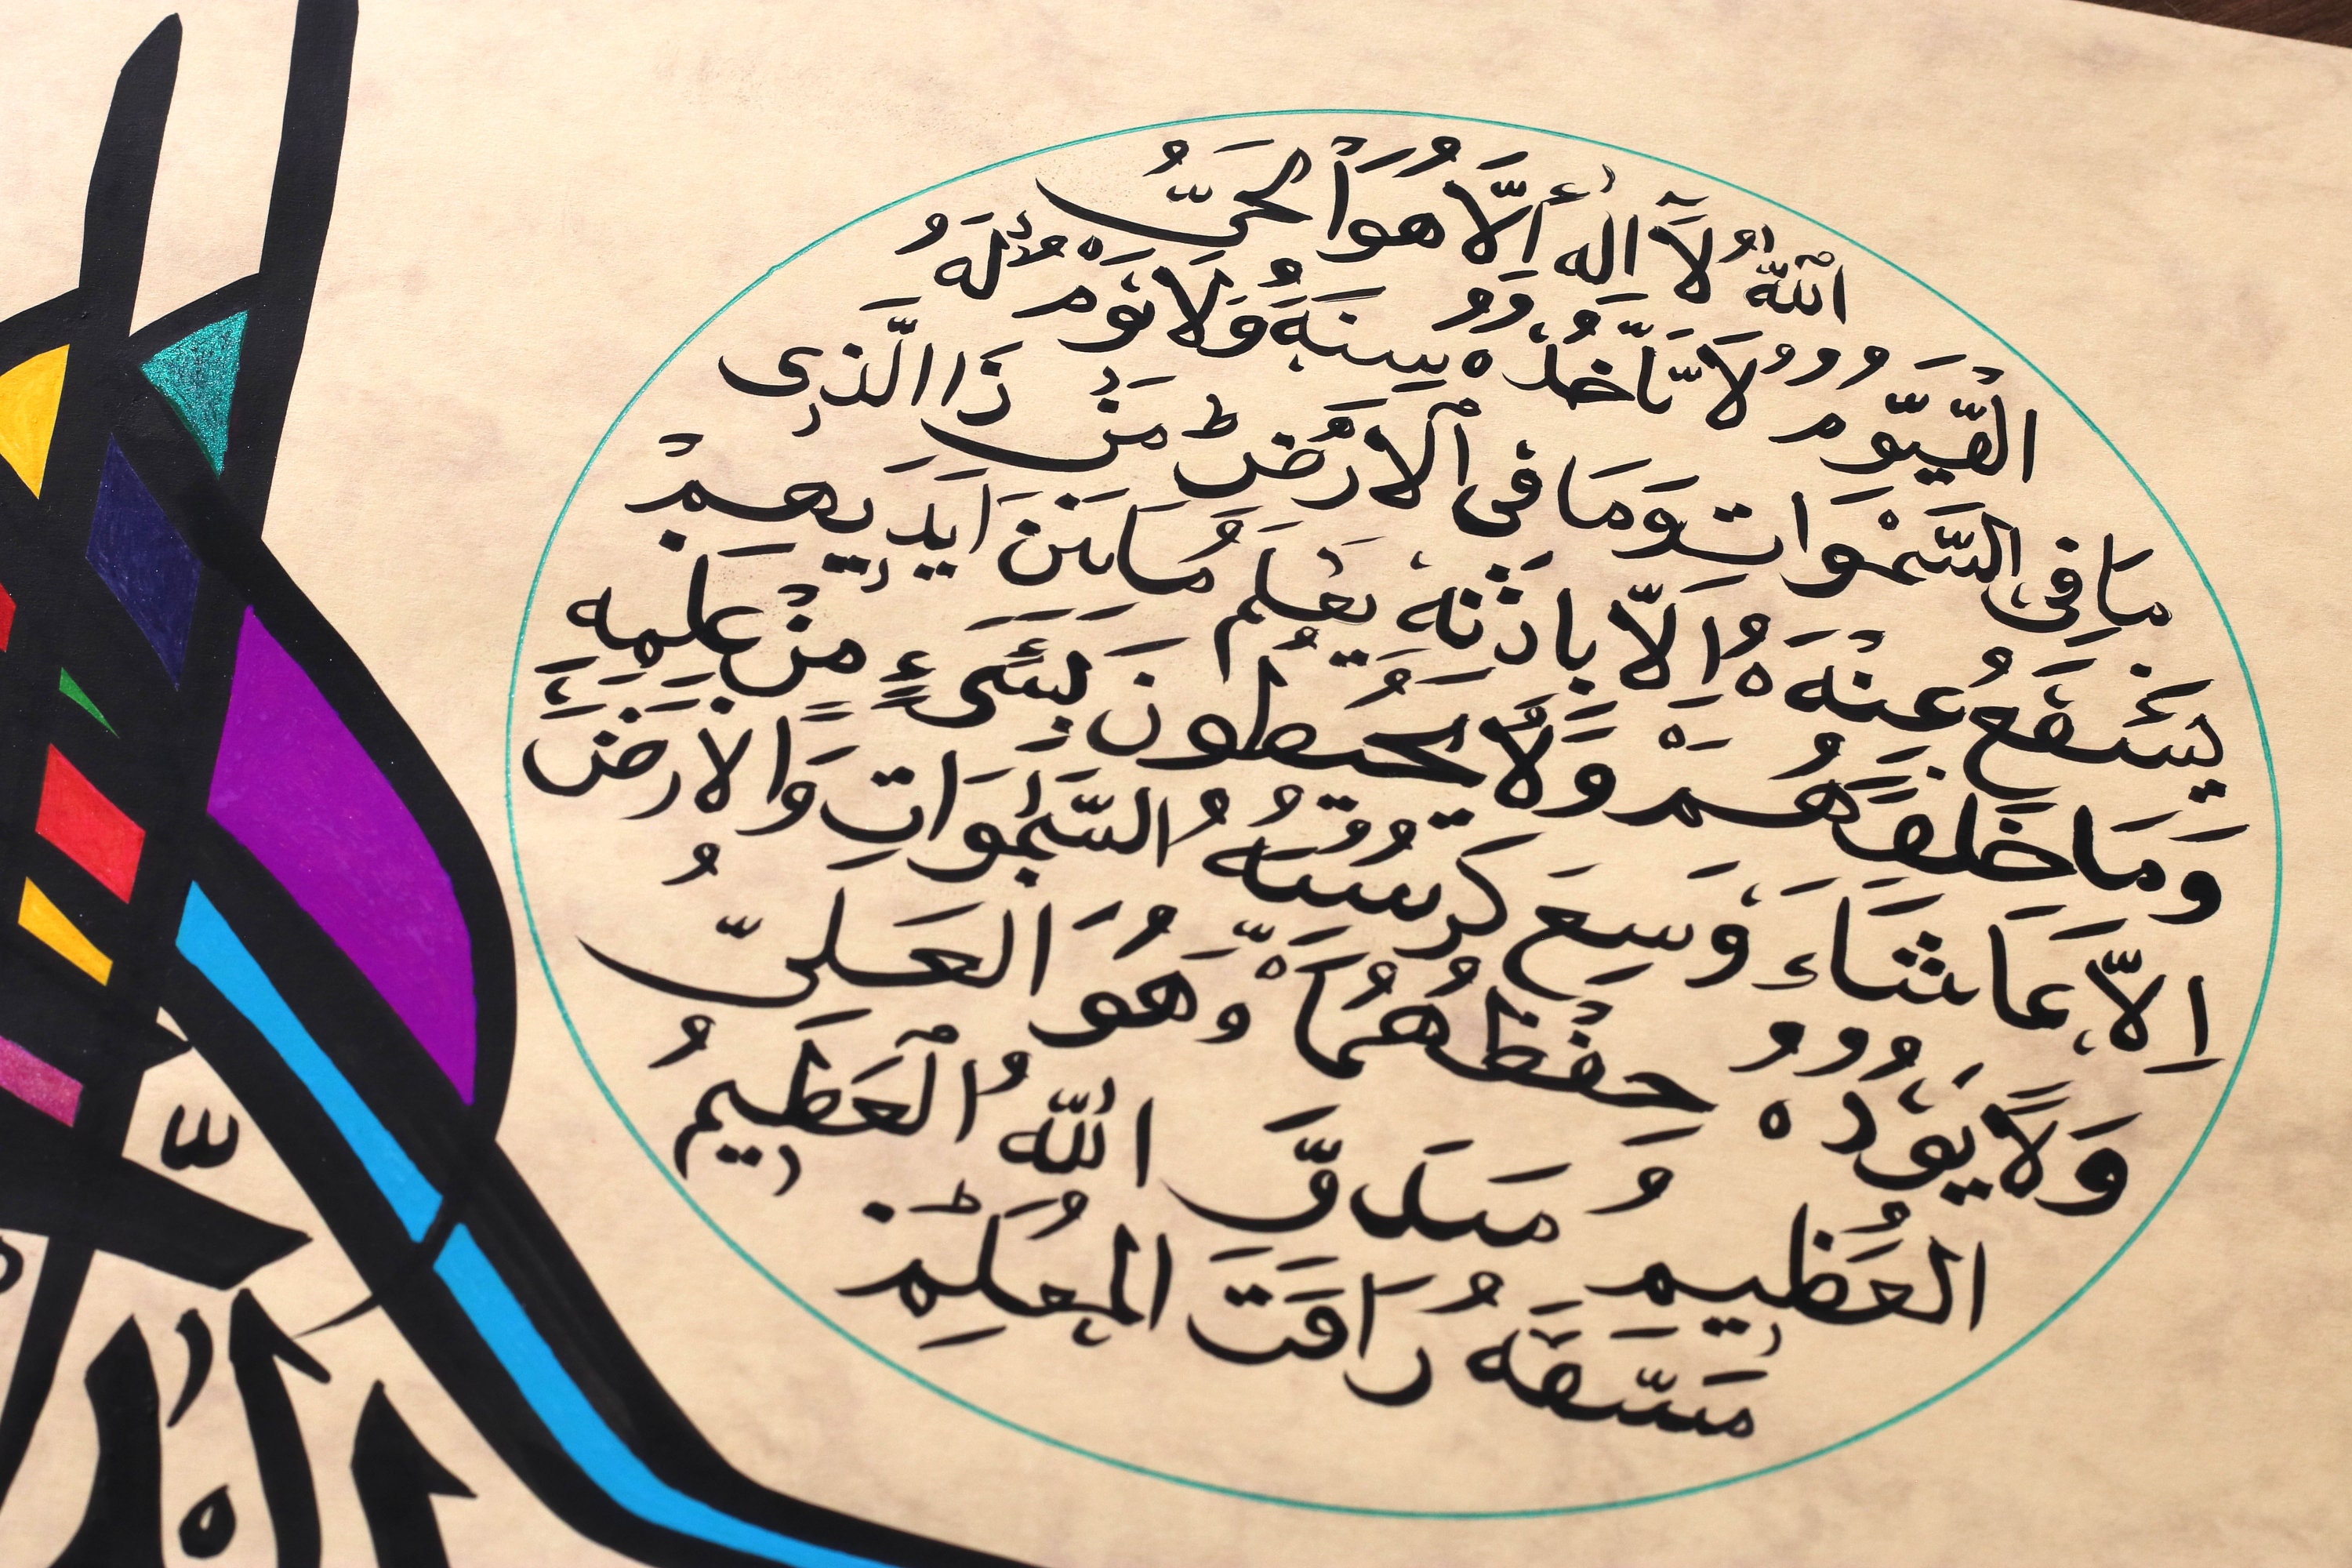 اللّٰهُ لَآ اِلٰهَ اِلَّا هُوَ اَلْحَيُّ
الْقَيُّوْمُ لَا تَاْخُذُهٗ سِنَةٌ وَلَا نَوْمٌ لَهٗ
مَا فِي السَّمٰوَاتِ وَمَا فِي الْاَرْضِ ط مَنْ ذَا الَّذِي
يَشْفَعُ عِنْدَهٗ اِلَّا بِاِذْنِهٖ يَعْلَمُ مَا بَيْنَ اَيْدِيهِمْ
وَمَا خَلْفَهُمْ وَلَا يُحِيطُونَ بِشَيْءٍ مِنْ عِلْمِهِ
اِلَّا بِمَا شَاءَ وَسِعَ كُرْسِيُّهُ السَّمٰوَاتِ وَالْاَرْضَ
وَلَا يَؤُدُهٗ حِفْظُهُمَا وَهُوَ الْعَلِيُّ
الْعَظِيمُ صَدَقَ اللّٰهُ الْعَظِيمُ